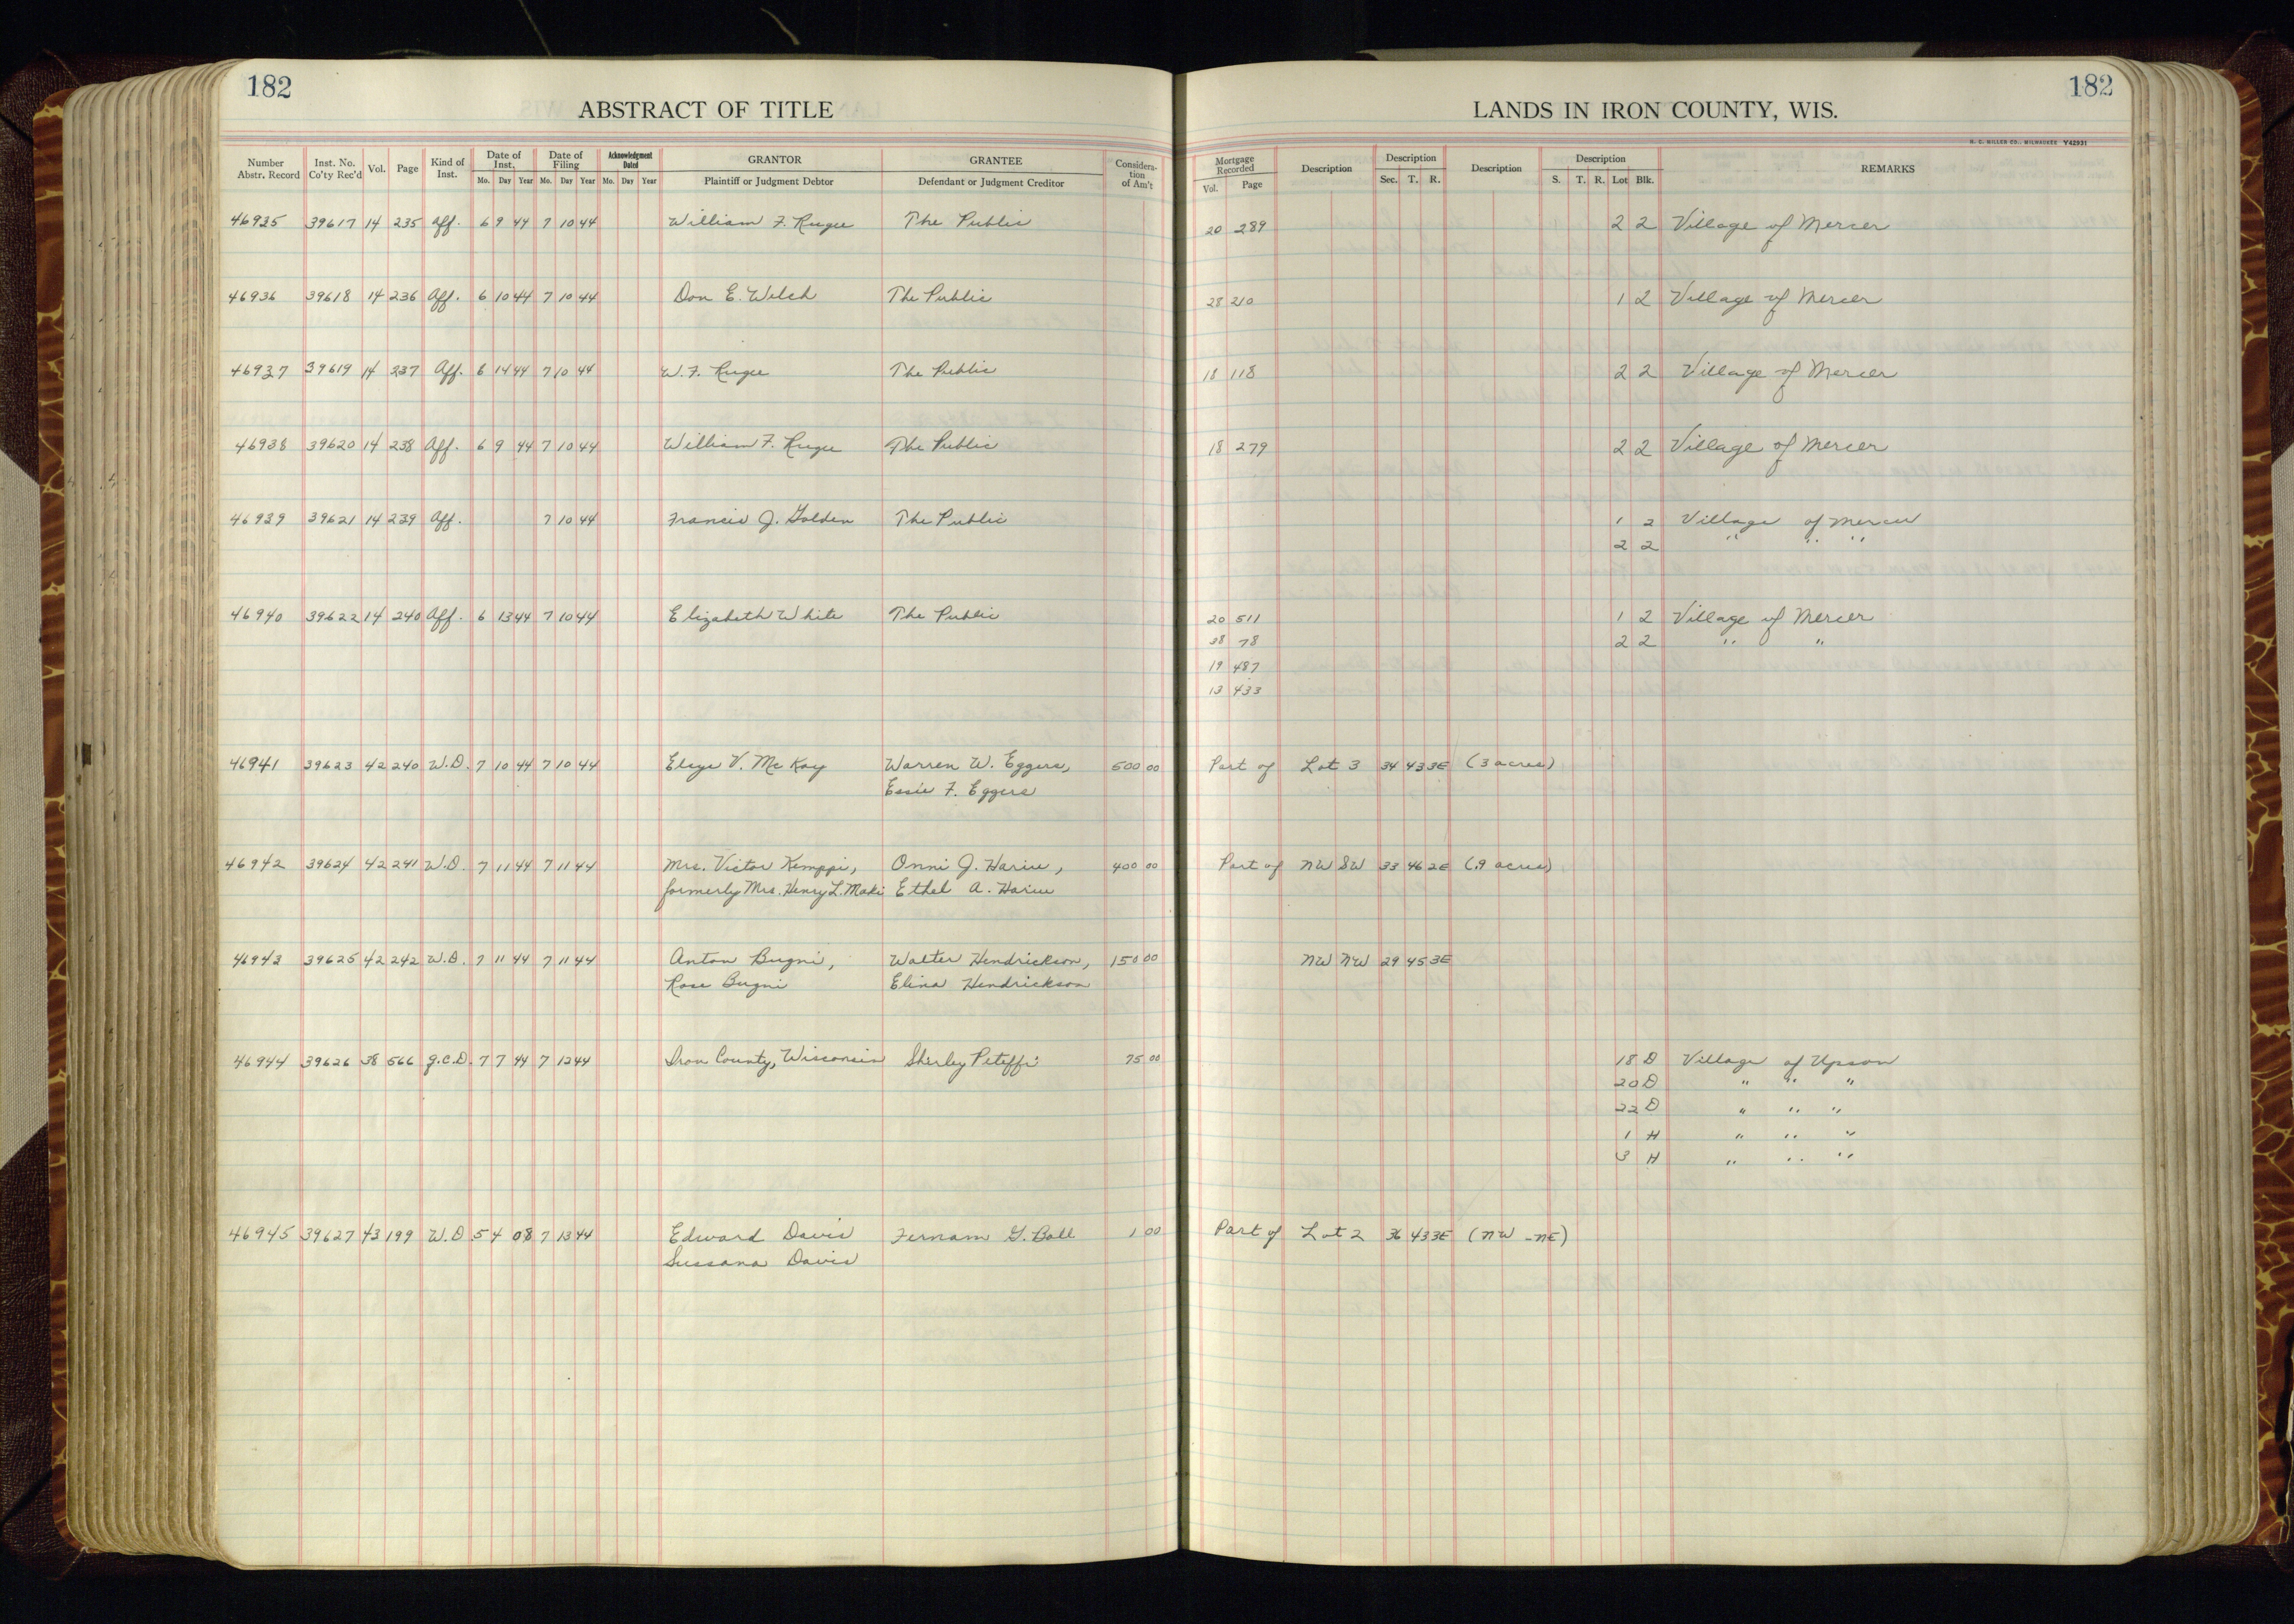 182
ABSTRACT OF TITLE
Number Abstr. Record | Inst. No. Co'ty Rec'd | Vol. | Page | Kind of Inst. | Date of Inst. Mo. Day Year | Date of Filing Mo. Day Year | Acknowledgment Dated Mo. Day Year | GRANTOR Plaintiff or Judgment Debtor | GRANTEE Defendant or Judgment Creditor | Considera-tion of Am't
46935 39617 14 235 Aff. 6 9 44 7 10 44 William F. Ruger The Public
46936 39618 14 236 Aff. 6 10 44 7 10 44 Don E. Welch The Public
46937 39619 14 237 Aff. 6 14 44 7 10 44 W. F. Ruger The Public
46938 39620 14 238 Aff. 6 9 44 7 10 44 William F. Ruger The Public
46939 39621 14 239 Aff. 7 10 44 Francis J. Golden The Public
46940 39622 14 240 Aff. 6 13 44 7 10 44 Elizabeth White The Public
46941 39623 42 240 W.D. 7 10 44 7 10 44 Elsye V. McKay Warren W. Eggers, 500 00
Essie F. Eggers
46942 39624 42 241 W.D. 7 11 44 7 11 44 Mrs. Victor Kemppi, Onni J. Harju, 400 00
formerly Mrs. Henry L. Maki Ethel A. Harju
46943 39625 42 242 W.D. 7 11 44 7 11 44 Anton Bugni, Walter Hendrickson, 150 00
Rose Bugni Elina Hendrickson
46944 39626 38 566 Q.C.D. 7 7 44 7 12 44 Iron County, Wisconsin Shirley Piteffi 75 00
46945 39627 43 199 W.D 5 4 08 7 13 44 Edward Davis Fernam G. Ball 1 00
Sussana Davis
182
LANDS IN IRON COUNTY, WIS.
H. C. MILLER CO., MILWAUKEE Y42931
Mortgage Recorded Vol. Page | Description | Description Sec. T. R. | Description | Description S. T. R. Lot Blk. | REMARKS
20 289 2 2 Village of Mercer
28 210 1 2 Village of Mercer
18 118 2 2 Village of Mercer
18 279 2 2 Village of Mercer
1 2 Village of Mercer
2 2 " " "
20 511 1 2 Village of Mercer
38 78 2 2 " "
19 487
13 433
Part of Lot 3 34 43 3E (3 acres)
Part of NW SW 33 46 2E (.9 acres)
NW NW 29 45 3E
18 D Village of Upson
20 D " " "
22 D " " "
1 H " " "
3 H " " "
Part of Lot 2 36 43 3E (NW - NE)